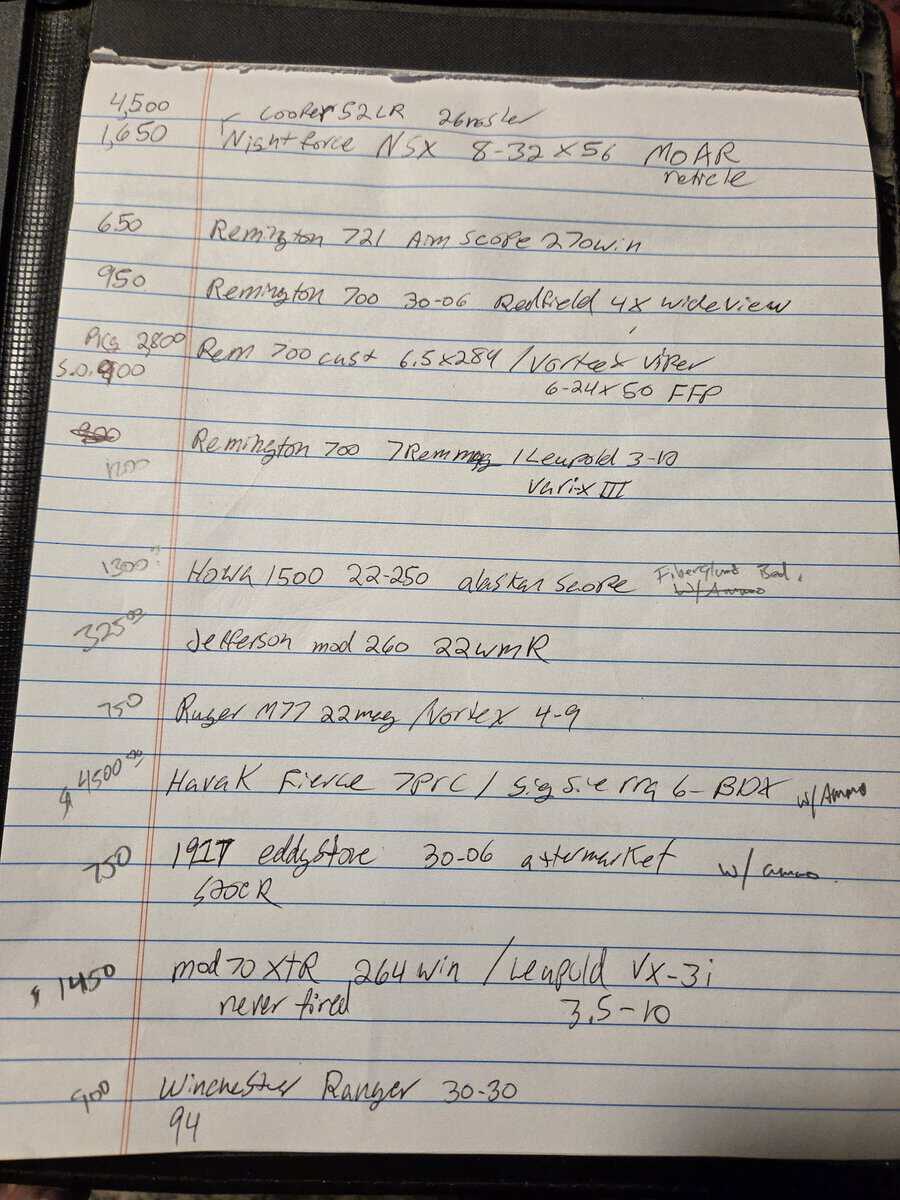 4,500 Cooper 52LR 26nosler
1,650 Nightforce NSX 8-32x56 MOAR
reticle
650 Remington 721 Aim scope 270win
950 Remington 700 30-06 Redfield 4x wideview
Pkg 2,800 Rem 700 cust 6.5x284 / Vortex Viper
S.O. 900 6-24x50 FFP
900 Remington 700 7Remmag / Leupold 3-10
1200 vari-x III
1300 Howa 1500 22-250 alaskan scope Fiberglund Bed.
w/ Ammo
325.00 Jefferson mod 260 22wmR
750 Ruger M77 22mag / Vortex 4-9
$4500.00 Havak Fierce 7Prc / Sig Sierra 6-BDX w/ Ammo
750 1917 eddystone 30-06 aftermarket w/ ammo
stock
$1450 mod 70 XTR 264 win / Leupold VX-3i
never fired 3.5-10
900 Winchester Ranger 30-30
94